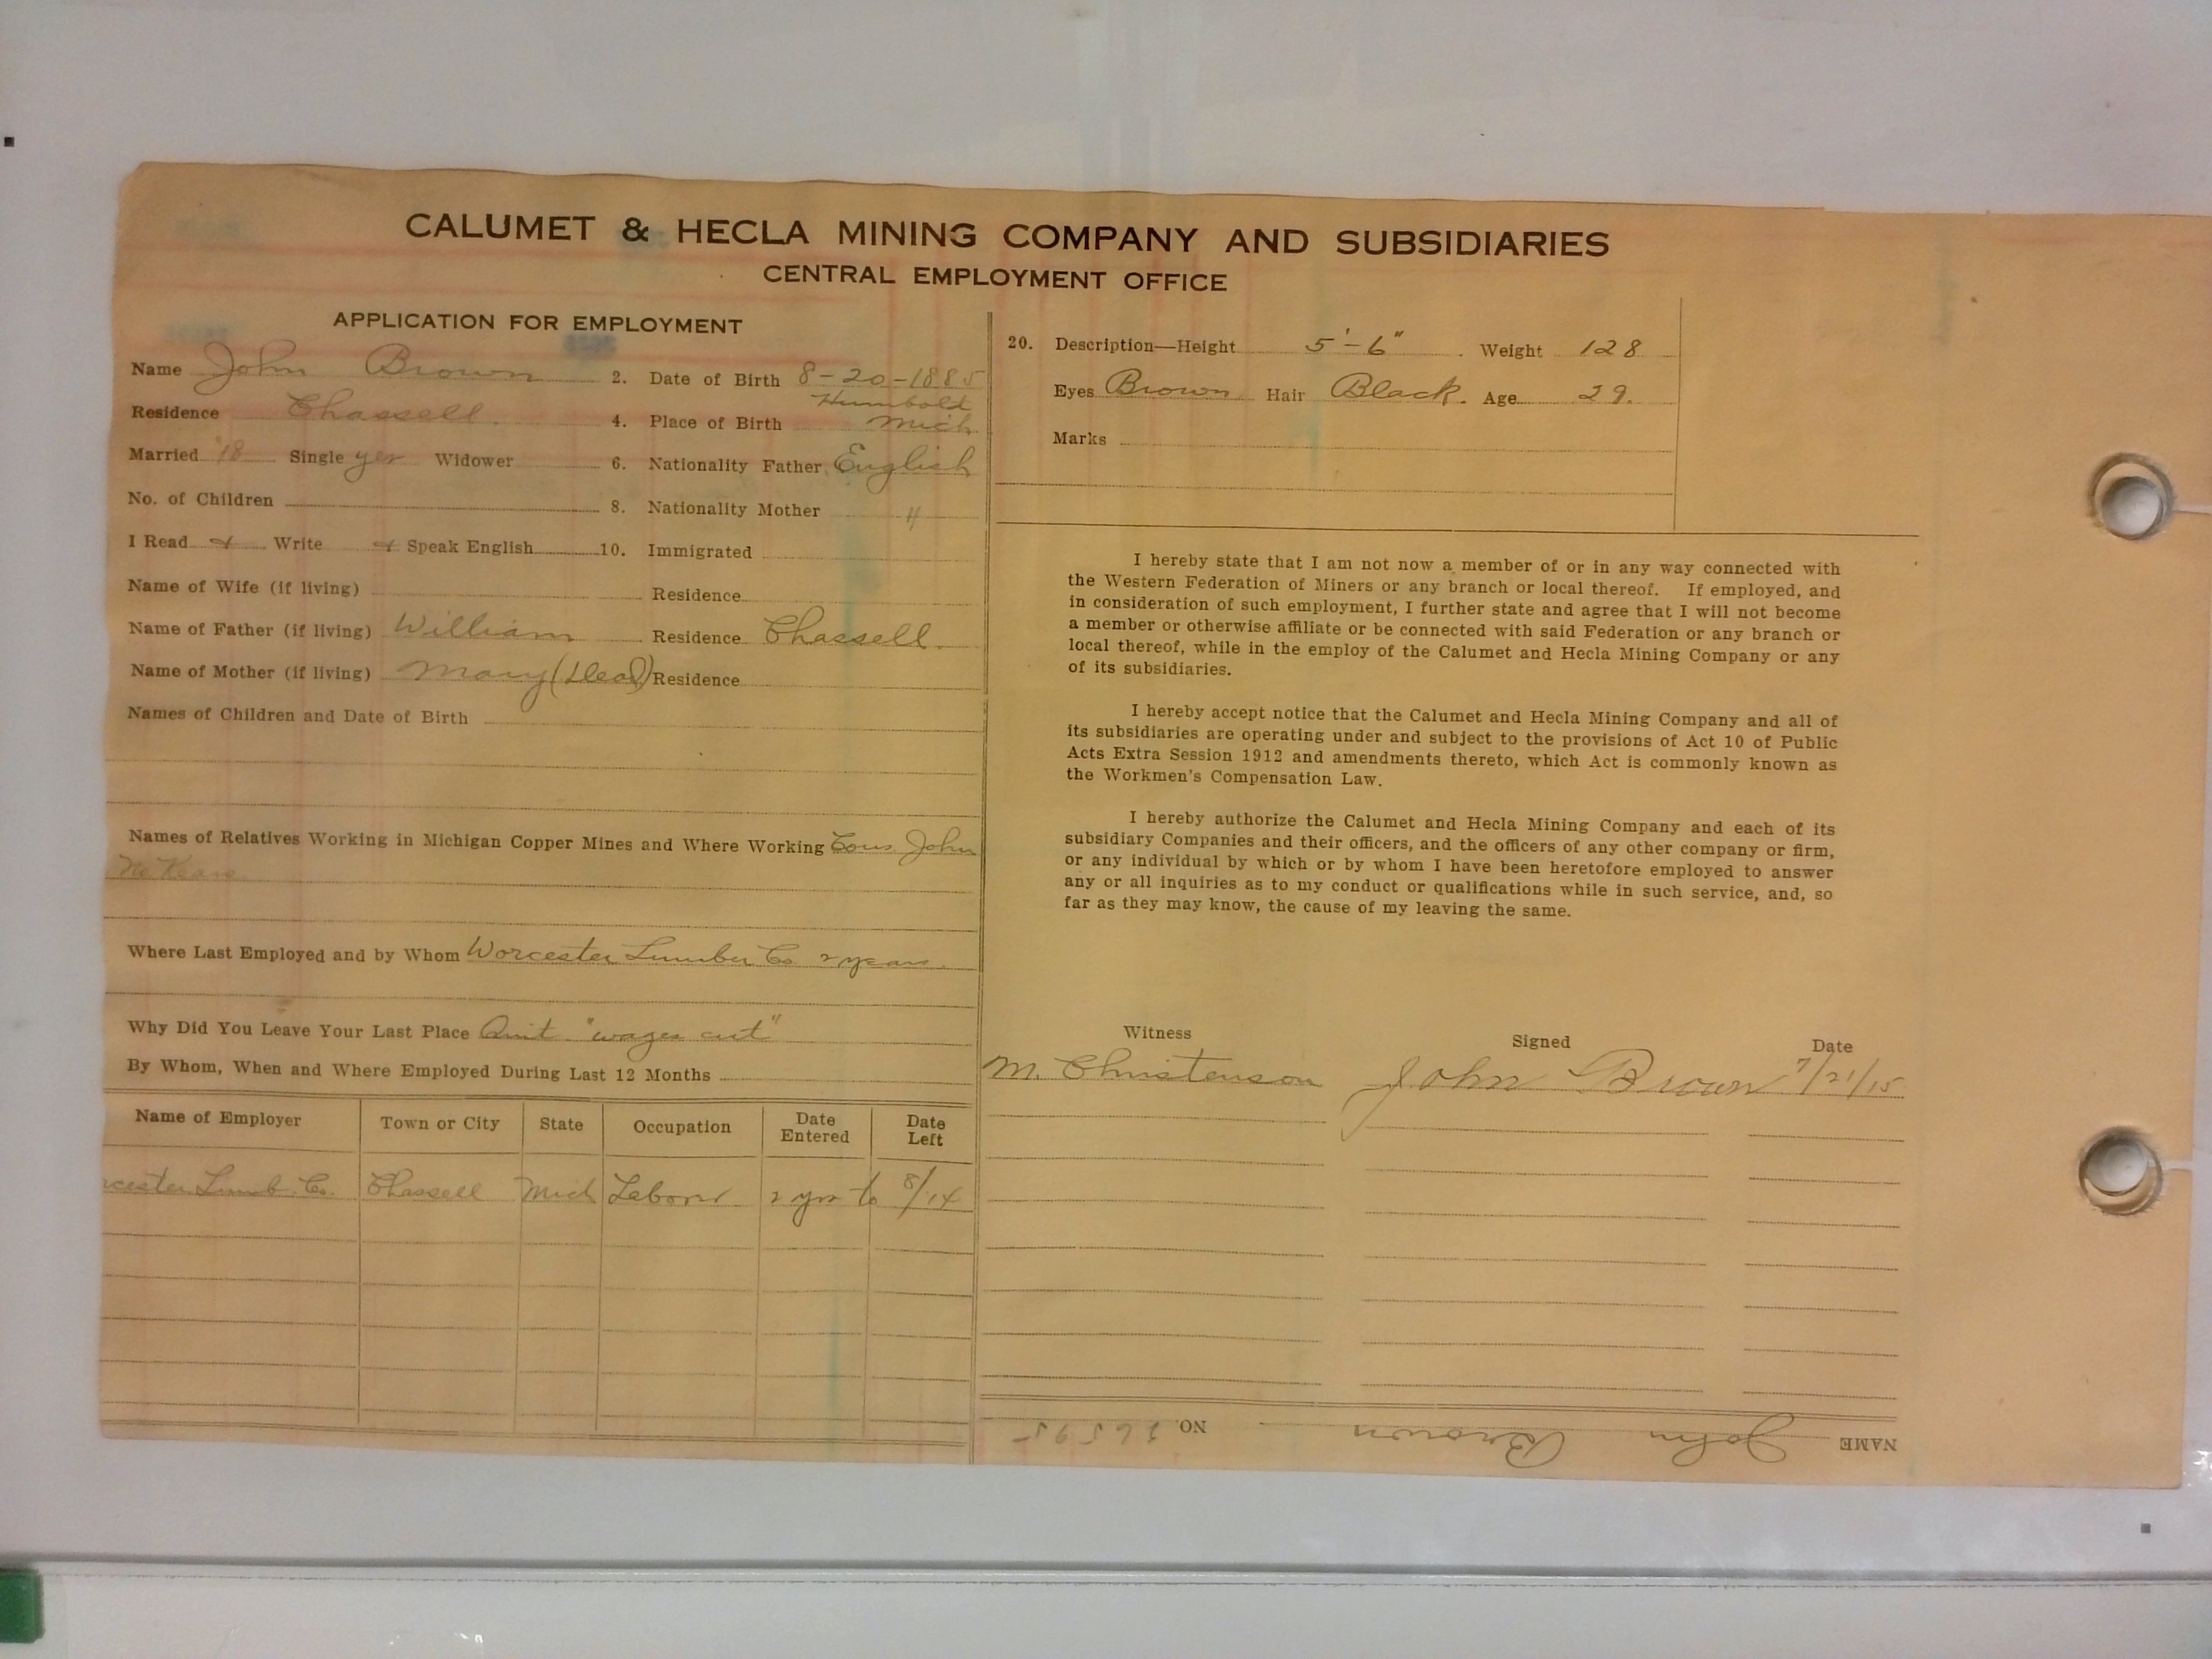 CALUMET & HECLA MINING COMPANY AND SUBSIDIARIES
CENTRAL EMPLOYMENT OFFICE
APPLICATION FOR EMPLOYMENT
Name John Brown 2. Date of Birth 8-20-1885
Humbold
Residence Chassell. 4. Place of Birth Mich
Married '18 Single yes Widower 6. Nationality Father English
No. of Children 8. Nationality Mother "
I Read Write Speak English 10. Immigrated
Name of Wife (if living) Residence
Name of Father (if living) William Residence Chassell.
Name of Mother (if living) Mary (Dead) Residence
Names of Children and Date of Birth
Names of Relatives Working in Michigan Copper Mines and Where Working Cous John
Where Last Employed and by Whom Worcester Lumber Co 2 years.
Why Did You Leave Your Last Place Quit "wages cut"
By Whom, When and Where Employed During Last 12 Months
Name of Employer Town or City State Occupation Date Entered Date Left
rcester Lumb. Co. Chassell Mich Laborer 2 yrs to 8/14
20. Description—Height 5'-6". Weight 128
Eyes Brown Hair Black. Age 29.
Marks
I hereby state that I am not now a member of or in any way connected with
the Western Federation of Miners or any branch or local thereof. If employed, and
in consideration of such employment, I further state and agree that I will not become
a member or otherwise affiliate or be connected with said Federation or any branch or
local thereof, while in the employ of the Calumet and Hecla Mining Company or any
of its subsidiaries.
I hereby accept notice that the Calumet and Hecla Mining Company and all of
its subsidiaries are operating under and subject to the provisions of Act 10 of Public
Acts Extra Session 1912 and amendments thereto, which Act is commonly known as
the Workmen's Compensation Law.
I hereby authorize the Calumet and Hecla Mining Company and each of its
subsidiary Companies and their officers, and the officers of any other company or firm,
or any individual by which or by whom I have been heretofore employed to answer
any or all inquiries as to my conduct or qualifications while in such service, and, so
far as they may know, the cause of my leaving the same.
Witness Signed Date
M. Christenson John Brown 7/21/15
NAME John Brown NO.